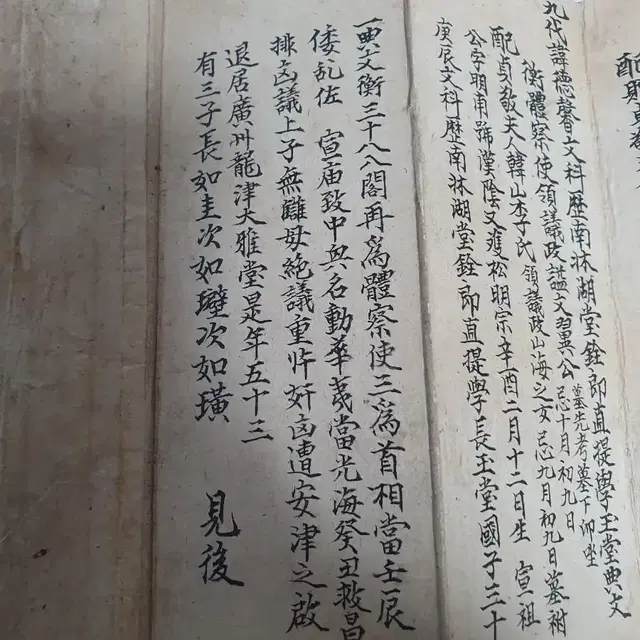 配
九代諱德馨文科歷南牀湖堂銓郎直提學玉堂典文
衡體察使領議政謚文翼公 墓先考墓下卯坐
忌十月初九日
配貞敬夫人韓山李氏領議政山海之女忌九月初九日墓祔
公字明甫號漢陰又雙松明宗辛酉二月十二日生 宣祖
庚辰文科歷南牀湖堂銓郎直提學長玉堂國子三十
一典文衡三十八入閣再爲體察使三爲首相當壬辰
倭乱佐 宣庙致中興名動華夷當光海癸丑救昌
排凶議上子無讎母絶議重忤奸凶遭安津之啟
退居廣州龍津大雅堂是年五十三
有三子長如圭次如璧次如璜 見後